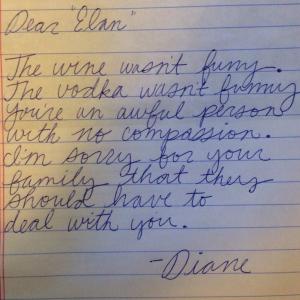 Dear "Elan"
The wine wasn't funny.
The vodka wasn't funny
You're an awful person
with no compassion.
I'm sorry for your
family that they
should have to
deal with you.
-Diane